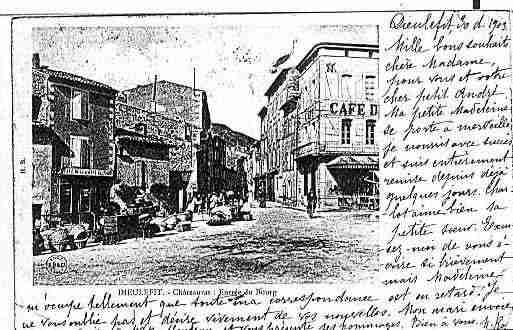 Dieulefit 30 d. 1903
Mille bons souhaits
chère Madame,
pour vous et votre
cher petit André
Ma petite Madeleine
se porte à merveille
je nourris avec succès
et suis entièrement
remise depuis déjà
quelques jours.
aime bien sa
petite sœur.
moi de vous
si brièvement
mais Madeleine
CAFE D
DIEULEFIT. - Châteauras : Entrée du Bourg
m'occupe tellement que toute ma correspondance est en retard. Je
ne vous oublie pas et désire vivement de vos nouvelles. Mon mari